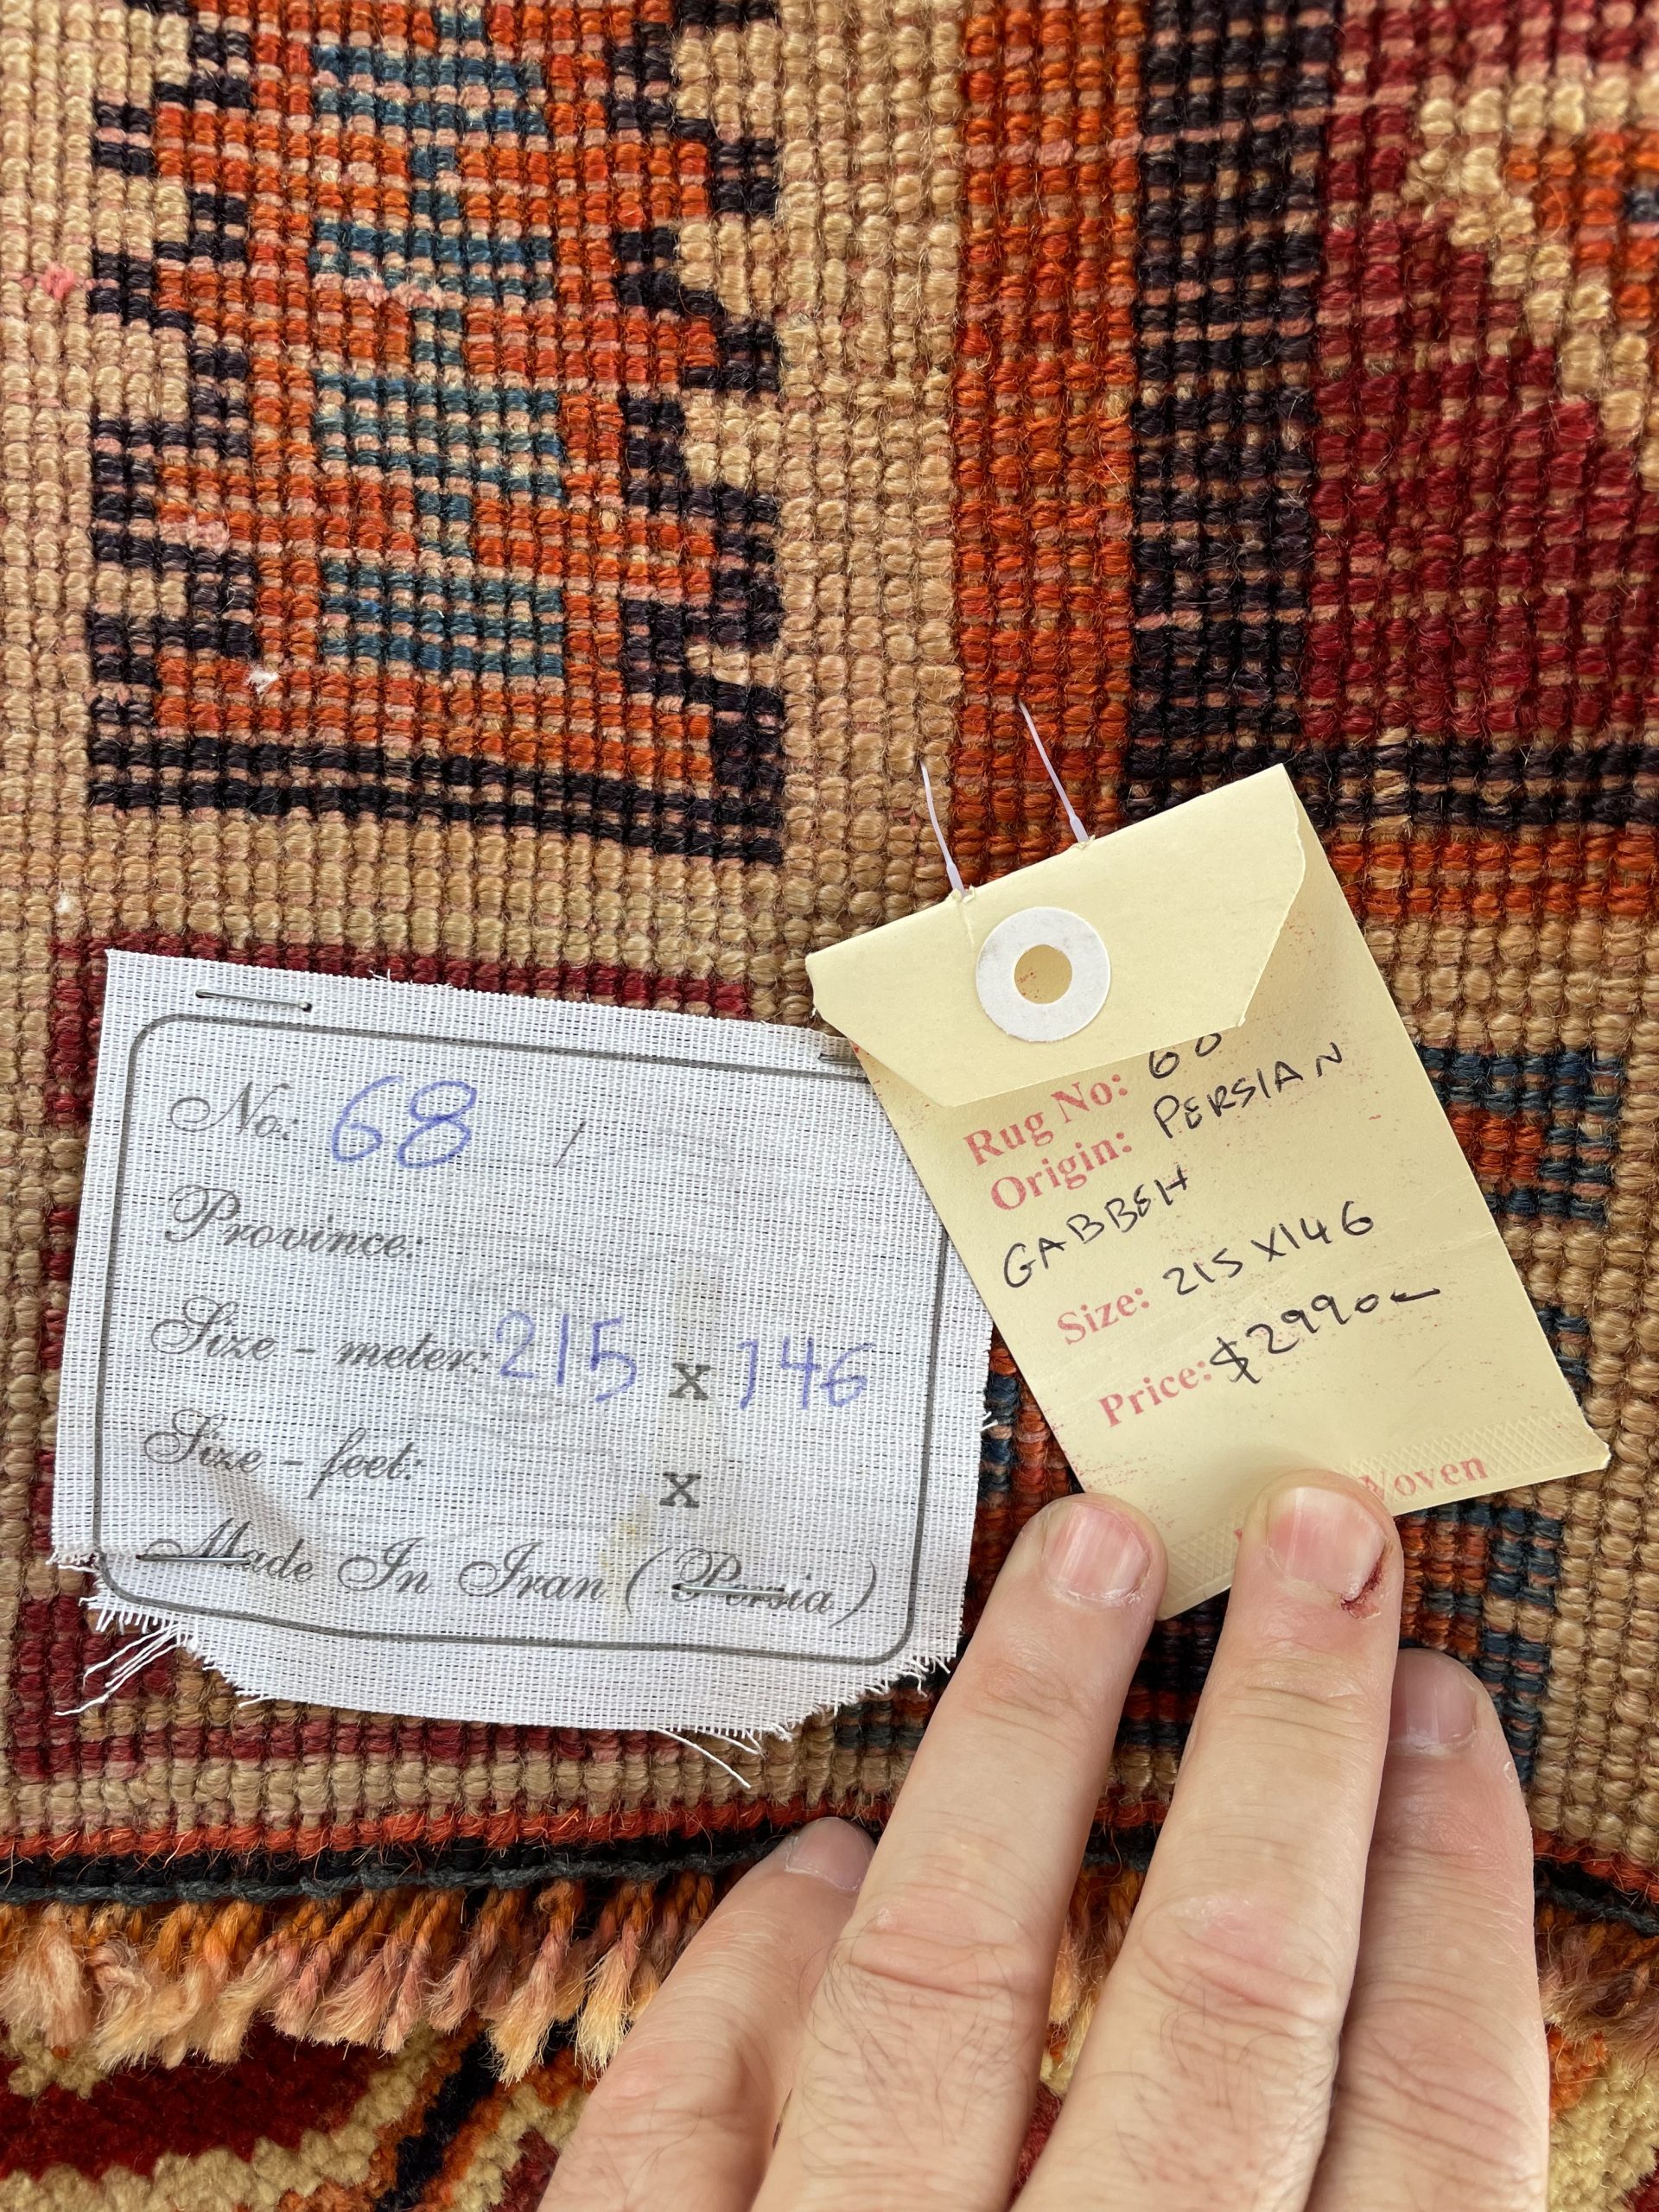 No: 68 /
Province:
Size - meter: 215 x 146
Size - feet: x
Made In Iran ( Persia )
Rug No: 68
Origin: PERSIAN
GABBEH
Size: 215 X146
Price: $2990-
Woven